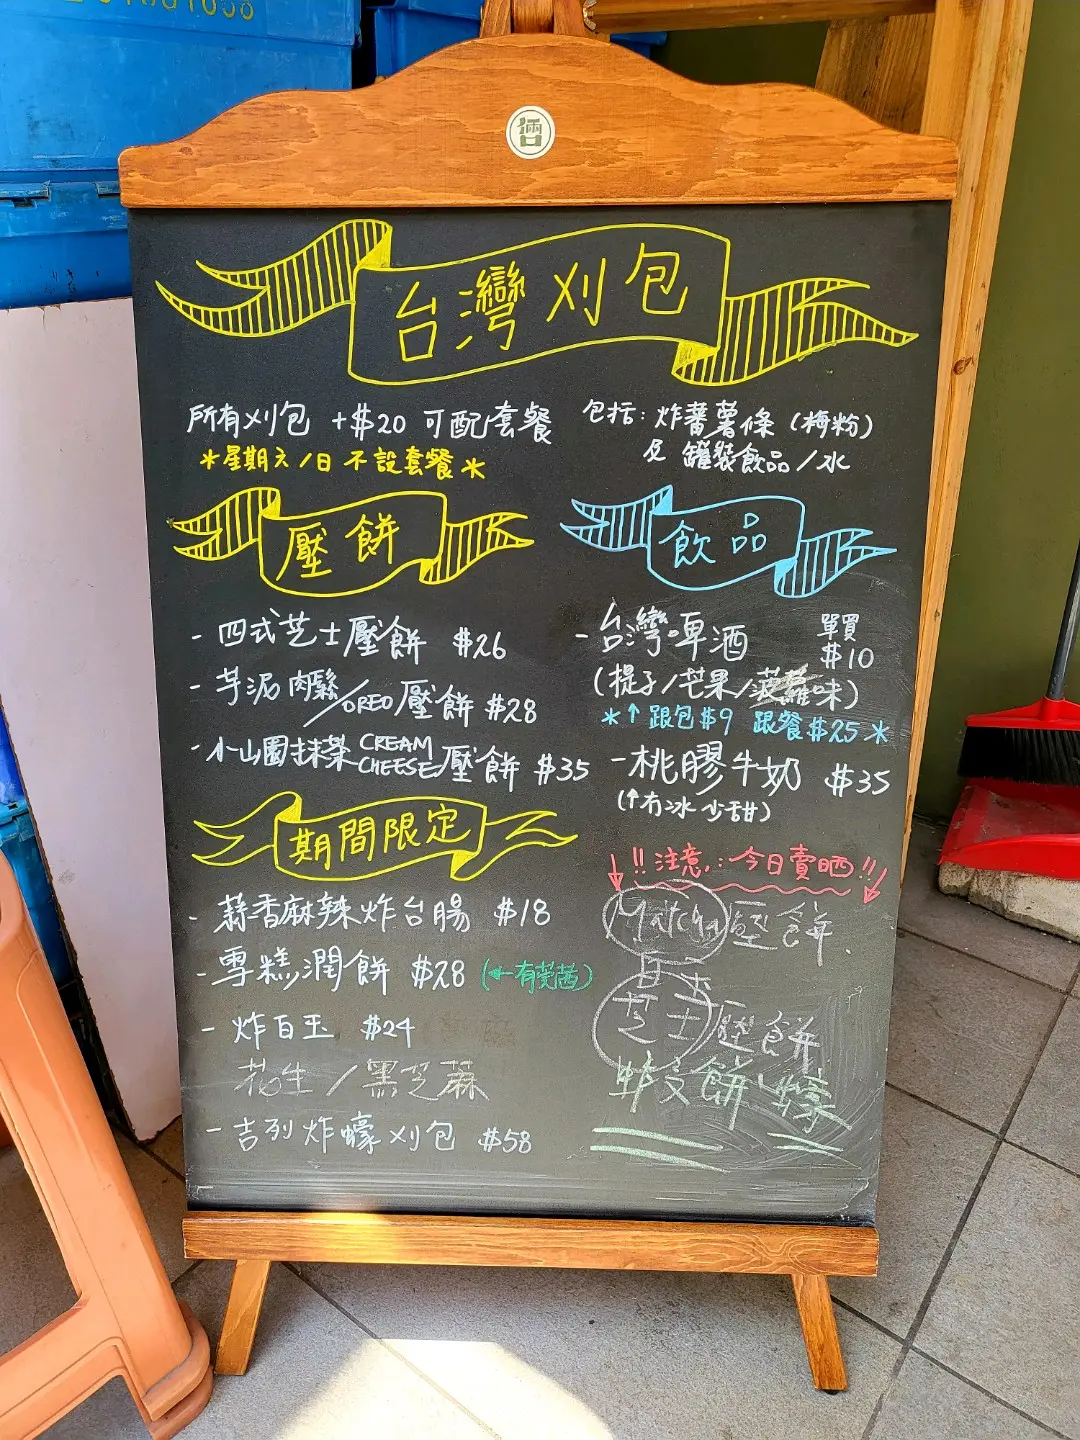 台灣刈包
所有刈包 +$20 可配套餐
*星期六/日 不設套餐*
包括: 炸蕃薯條 (梅粉)
及 罐裝飲品/水
壓餅
- 四式芝士壓餅 $26
- 芋泥肉鬆/OREO壓餅 $28
- 小山園抹茶CREAM CHEESE壓餅 $35
飲品
- 台灣啤酒 單買 $10
(提子/芒果/菠蘿味)
*↑跟包$9 跟餐$25*
- 桃膠牛奶 $35
(↑冇冰 少甜)
期間限定
- 蒜香麻辣炸台腸 $18
- 雪糕潤餅 $28 (←有芫茜)
- 炸白玉 $24
花生/黑芝麻
- 吉列炸蠔刈包 $58
!!注意: 今日賣晒!!
Matcha壓餅
芝士壓餅